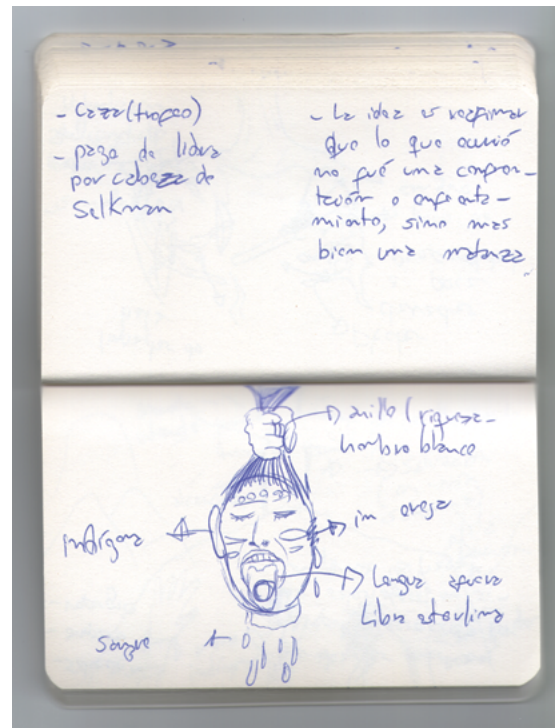 - caza (trofeo)
- pago de libra
por cabeza de
Selknam
- La idea es reafirmar
que lo que ocurrió
no fué una confron-
tación o enfrenta-
miento, sino mas
bien una matanza
anillo (riqueza -
hombre blanco
indígena
sin oreja
Lengua afuera
Libra esterlina
Sangre